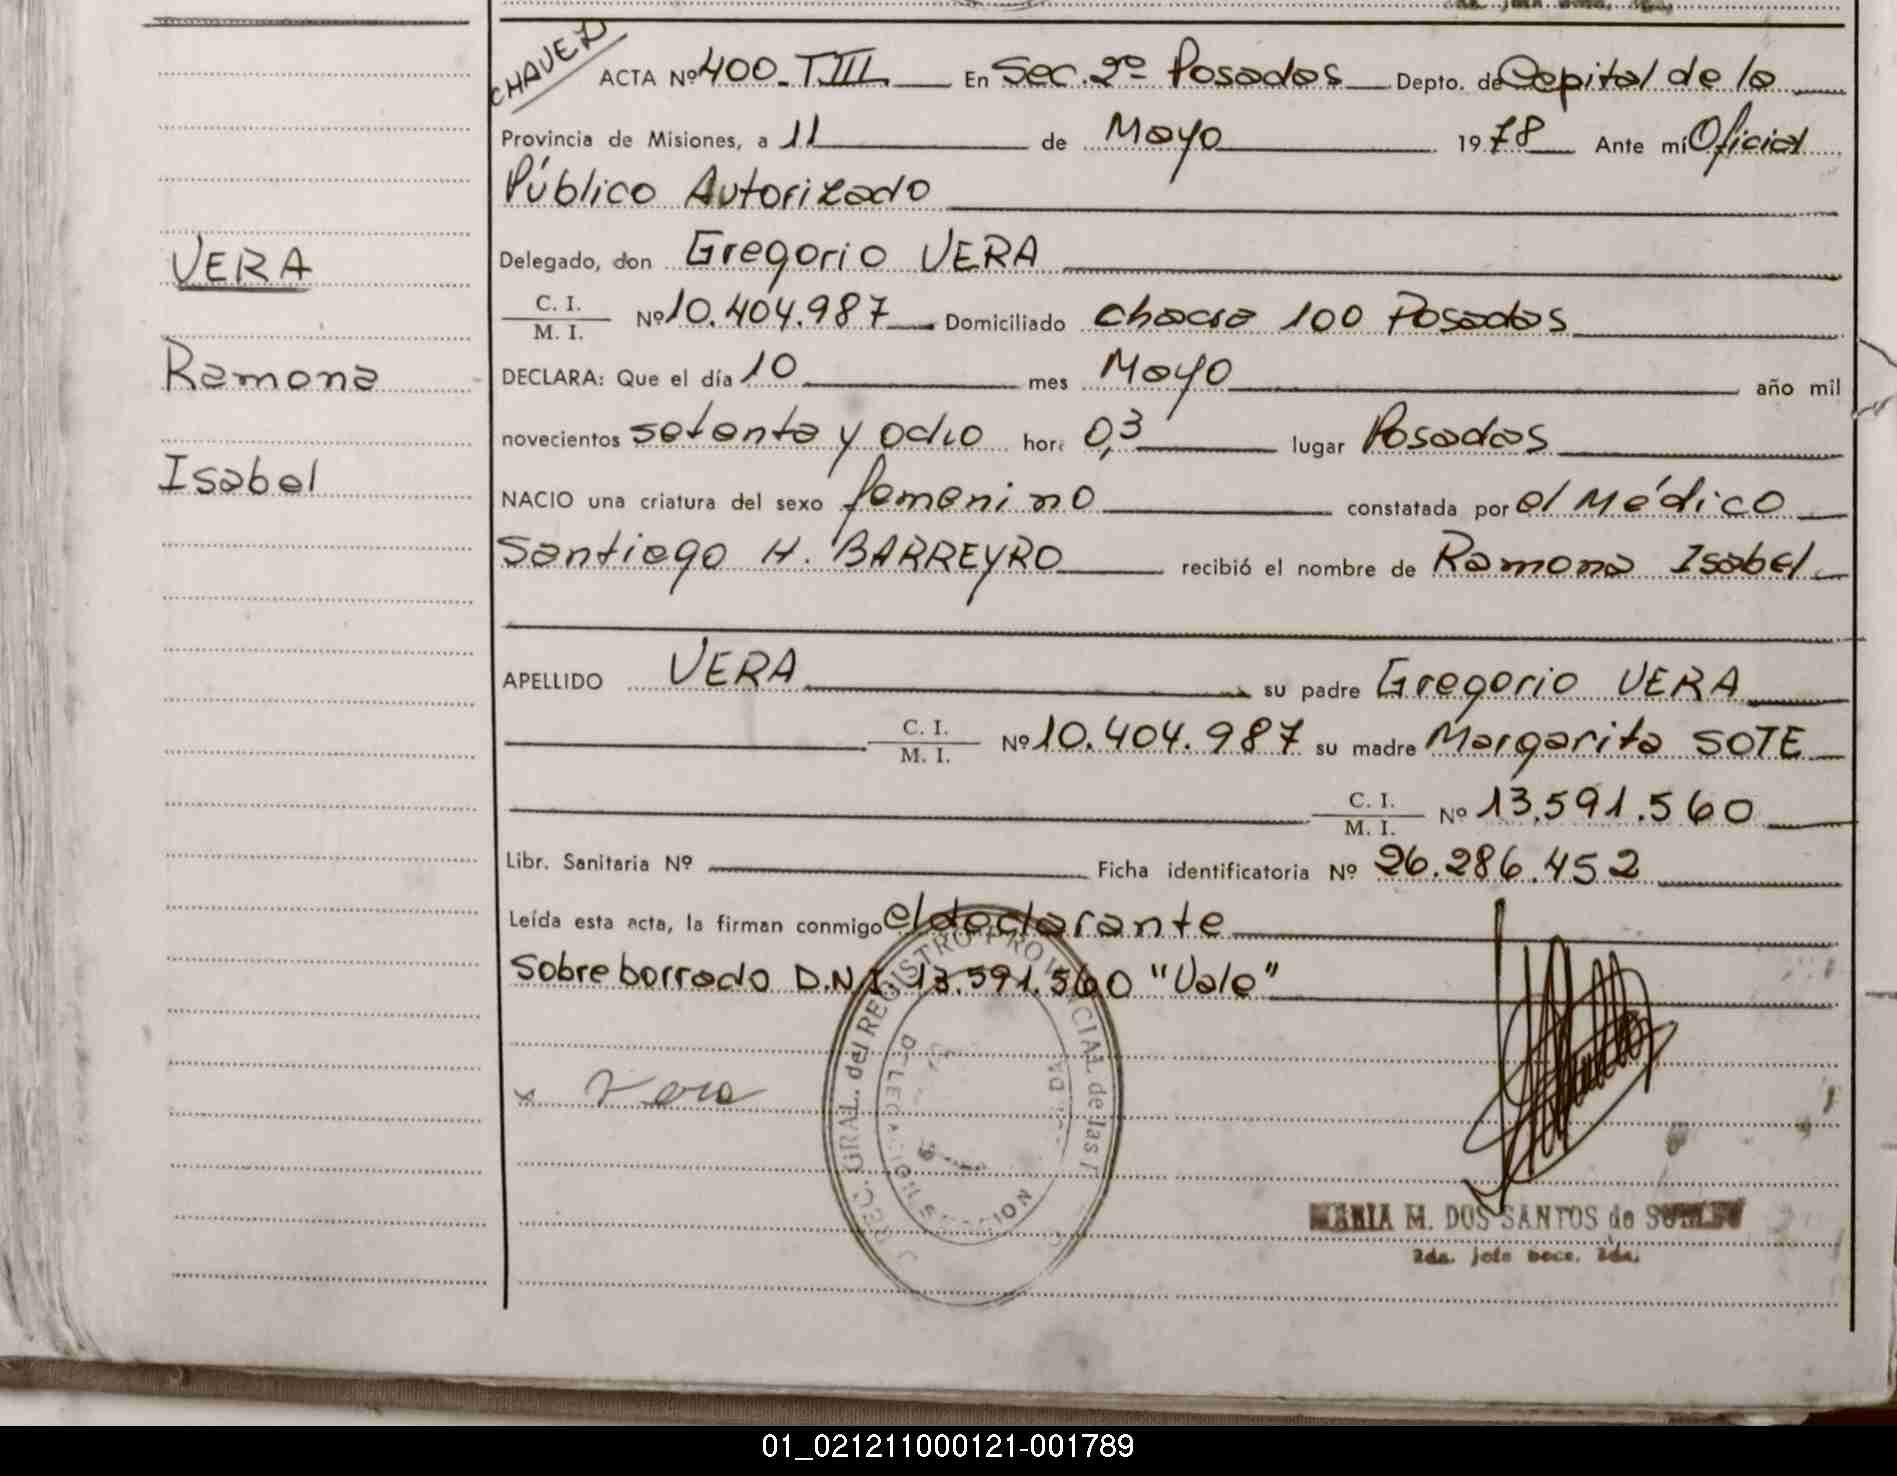 CHAVEZ
ACTA Nº 400_TIII. En Sec. 2º Posadas Depto. de Capital de la
Provincia de Misiones, a 11 de Mayo 1978 Ante mí Oficial
Público Autorizado
VERA
Delegado, don Gregorio VERA
C. I.
M. I. Nº 10.404.987 Domiciliado Chacra 100 Posadas
Ramona
DECLARA: Que el día 10 mes Mayo año mil
novecientos setenta y ocho hora 0,3 lugar Posadas
Isabel
NACIO una criatura del sexo femenino constatada por el Médico
Santiago H. BARREYRO recibió el nombre de Ramona Isabel
APELLIDO VERA su padre Gregorio VERA
C. I.
M. I. Nº 10.404.987 su madre Margarita SOTE
C. I.
M. I. Nº 13.591.560
Libr. Sanitaria Nº Ficha identificatoria Nº 26.286.452
Leída esta acta, la firman conmigo el declarante
Sobreborrado D.N.I. 13.591.560 "Vale"
x Vera
GRAL. del REGISTRO PROVINCIAL de las
MARIA M. DOS SANTOS de
2da. jefe secc. 2da.
01_021211000121-001789